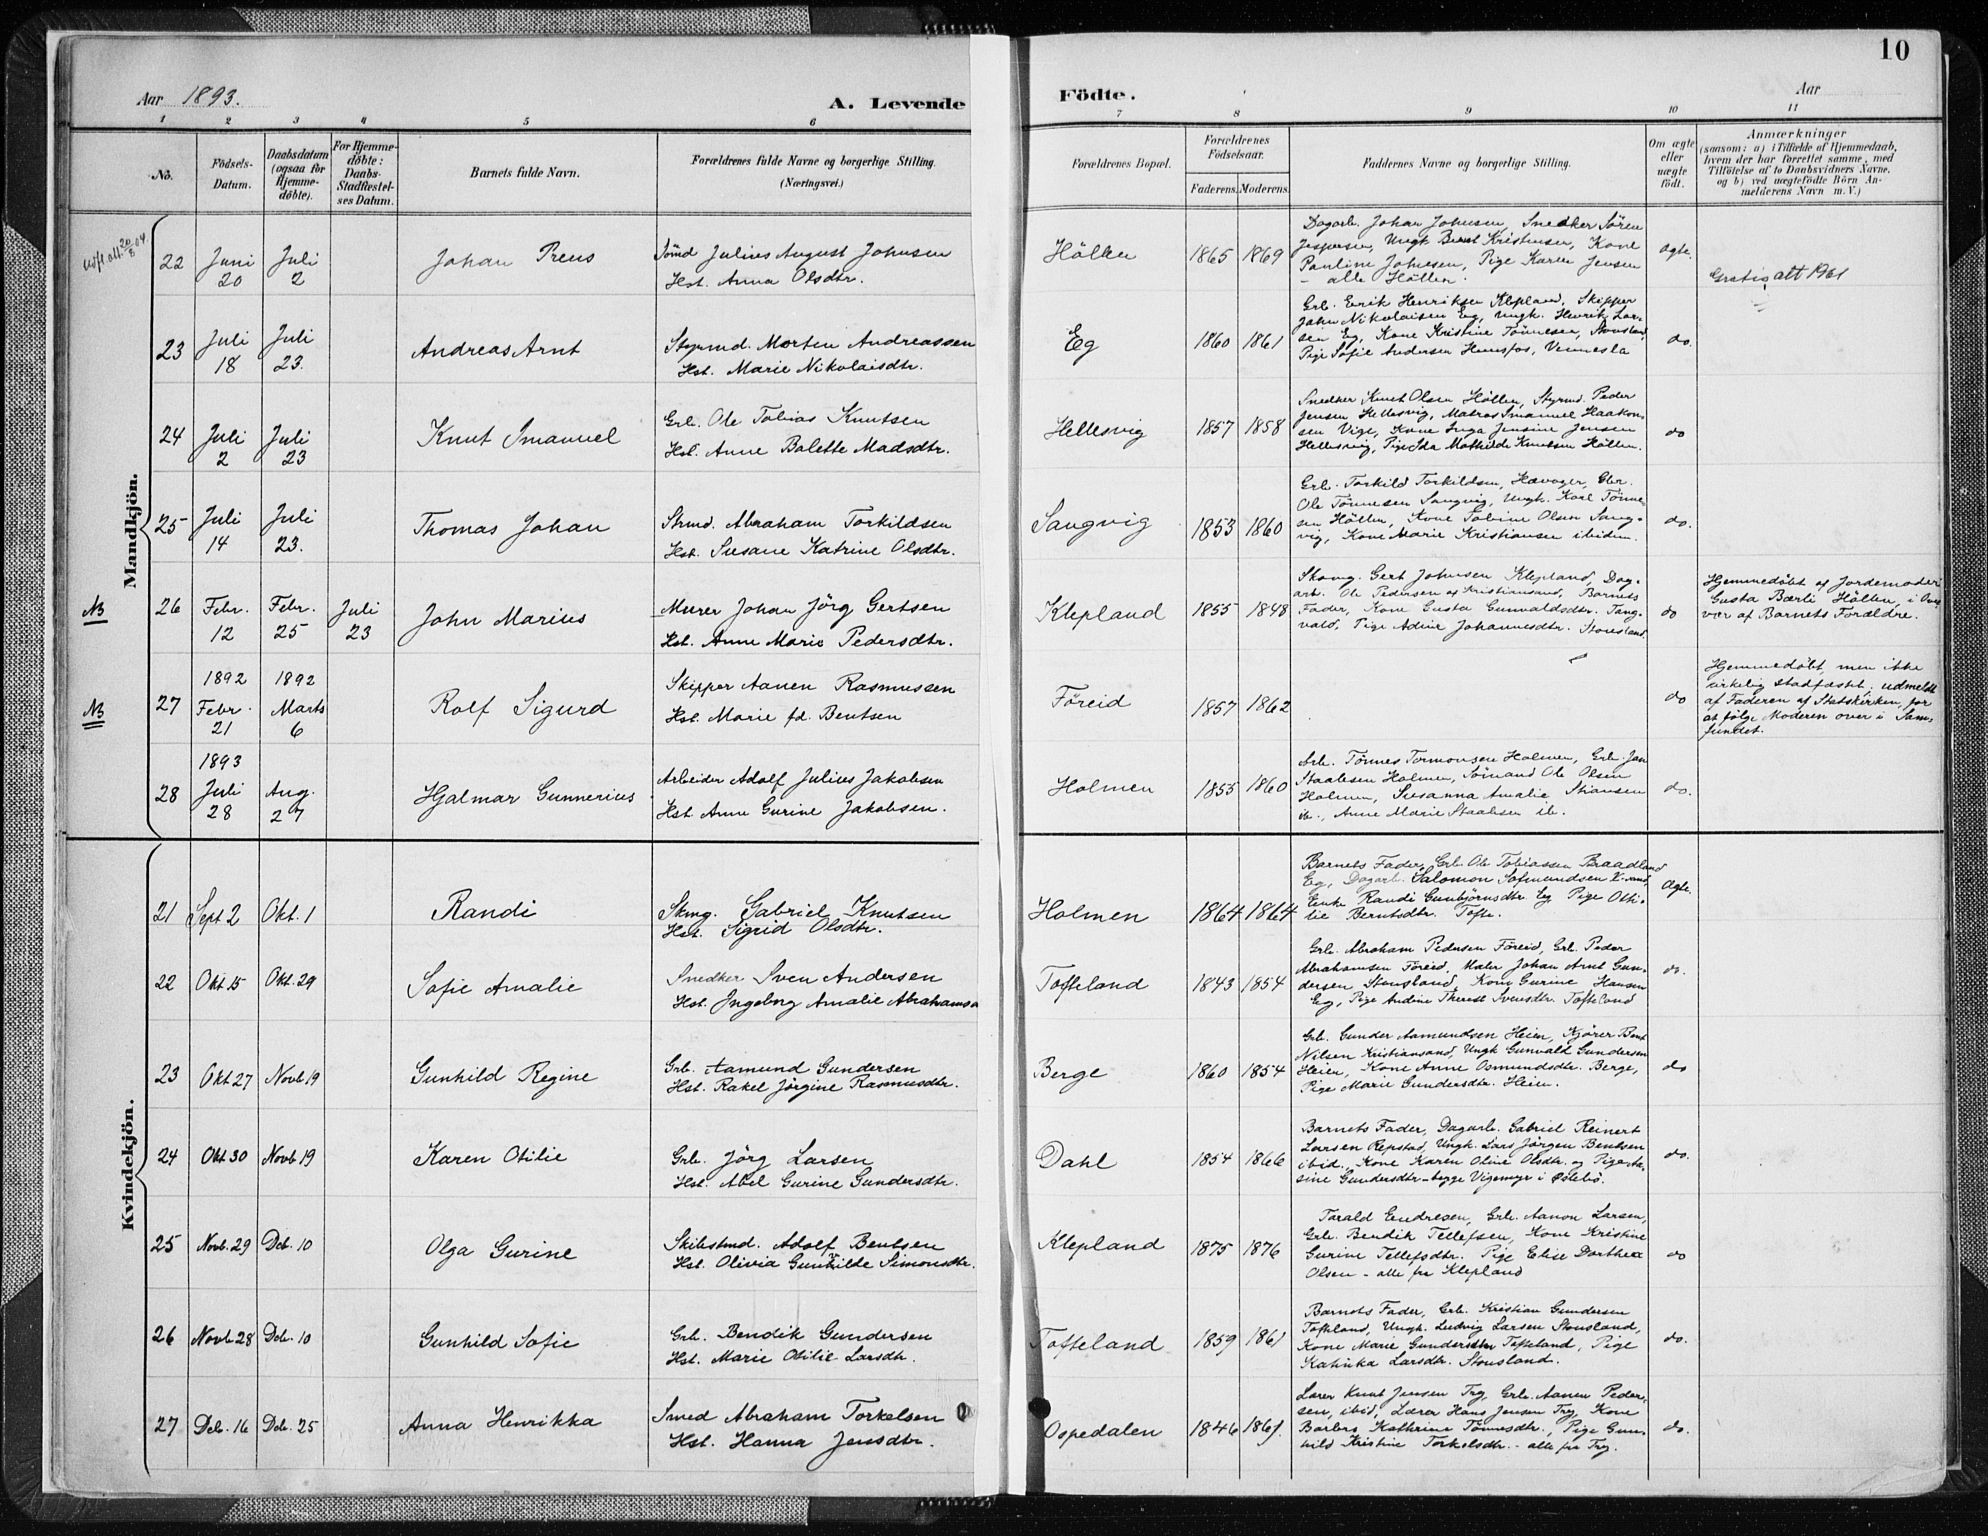 10
Aar 1893.
A. Levende
Födte.
Aar
1 2 3 4 5 6 7 8 9 10 11
No.
Födsels-
Datum.
Daabsdatum
(ogsaa for
Hjemme-
döbte).
For Hjemme-
döbte:
Daabs-
Stadfæstel-
ses Datum.
Barnets fulde Navn.
Forældrenes fulde Navne og borgerlige Stilling.
(Næringsvei.)
Forældrenes Bopæl.
Forældrenes
Födselsaar.
Faderens. Moderens.
Faddernes Navne og borgerlige Stilling.
Om ægte
eller
uægte
født.
Anmærkninger
(saasom: a) i Tilfælde af Hjemmedaab,
hvem der har forrettet samme, med
Tilføielse af to Daabsvidners Navne,
og b) ved uægtefödte Börn An-
melderens Navn m. V.)
Mandkjön.
22 Juni 20 Juli 2
Johan Preus
Sömd Julius August Johnsen
Hst. Anna Olsdtr.
Höllen
1865 1869
Dagarb. Johan Johnsen, Snedker Sören
Jespersen, Ungk Bernt Kristensen, Kone
Pauline Johnsen, Pige Karen Jensen
- alle Höllen.
ægte.
Gratis att 1961
23 Juli 18 Juli 23.
Andreas Arnt
Styrmd. Morten Andreassen
Hst. Marie Nikolaisdtr.
Eg
1860 1861
Grb. Erik Henriksen Klepland, Skipper
John Nikolaisen Eg, Ungk. Henrik Lar-
sen Eg, Kone Kristine Tönnesen, Stousland,
Pige Sofie Andersen Hunsfos, Vennesla
do.
24 Juli 2 Juli 23
Knut Imanuel
Grb. Ole Tobias Knutsen
Hst. Anne Bolette Madsdtr.
Hellesvig
1857 1858
Snedker Knut Olsen Höllen, Styrmd. Peder
Jensen Hellesvig, Matros Imanuel Haakon-
sen Vige, Kone Inga Jensine Jensen
Hellesvig, Pige Ida Mathilde Knutsen Höllen.
do
25 Juli 14 Juli 23.
Thomas Johan
Strmd. Abraham Torkildsen
Hst. Susane Katrine Olsdtr.
Sangvig
1853 1860
Grb. Torkild Torkildsen, Hævager, Gbr.
Ole Tönnesen Sangvig, Ungk. Karl Tönne-
sen Höllen, Kone Tobine Olsen Sang-
vig, Kone Marie Kristiansen ibidem.
do.
NB 26 Febr. 12 Febr. 25 Juli 23
John Marius
Murer Johan Jörg Gertsen
Hst. Anne Marie Pedersdtr.
Klepland
1855 1848
Skomg. Gert Johnsen Klepland, Dag-
arb. Ole Pedersen af Kristiansand, Barnets
Fader, Kone Gusta Gunvaldsdtr. Tang-
vald, Pige Adine Johannesdtr. Stousland.
do
Hjemmedöbt af Jordemoder
Gusta Bærli Höllen, i Over-
vær af Barnets Forældre.
NB 27 1892 Febr. 21 1892 Marts 6
Rolf Sigurd
Skipper Aanen Rasmussen
Hst. Marie fd. Bentsen
Föreid
1857 1862
do
Hjemmedöbt men ikke
kirkelig stadfæstet, udmeldt
af Faderen af Statskirken, for
at følge Moderen over i Sam-
fundet.
28 1893 Juli 28 Aug. 27
Hjalmar Gunnerius
Arbeider Adolf Julius Jakobsen
Hst Anne Gurine Jakobsen.
Holmen
1855 1860
Arb. Tönnes Tormonsen Holmen, Grb. Jan
Staalesen Holmen, Sömand Ole Olsen
Holmen, Susanna Amalie Stiansen
ib., Anne Marie Staalesen ib.
do.
Kvindekjön.
21 Sept 2 Okt. 1
Randi
Skmg. Gabriel Knutsen
Hst. Sigrid Olsdtr.
Holmen
1864 1864
Barnets Fader, Grb. Ole Tobiassen Braadland
Eg, Dagarb. Salomon Sofmundsen K.sand,
Enke Randi Gunbjörnsdtr. Eg Pige Otti-
lie Berntsdtr. Tofte.
Ægte.
22 Okt. 15 Okt. 29
Sofie Amalie
Snedker Sven Andersen
Hst. Ingeborg Amalie Abrahamsd
Tofteland
1843 1854
Grb. Abraham Pedersen Föreid, Grb. Peder
Abrahamsen Föreid, Maler Johan Arnt Gun-
dersen Stousland, Kone Gurine Hansen
Eg, Pige Andine Therese Svensdtr. Tofteland
do.
23 Okt. 27 Novb. 19
Gunhild Regine
Grb. Aamund Gundersen
Hst. Rakel Jörgine Rasmusdtr.
Berge
1860 1854
Grb. Gunder Aamundsen Heien, Kjörer Bent
Nilsen Kristiansand, Ungk Gunvald Gundersen
Heien, Kone Anne Osmundsdtr. Berge,
Pige Marie Gundersdtr. Heien.
do
24 Okt. 30 Novb. 19
Karen Otilie
Grb. Jörg Larsen
Hst. Abel Gurine Gundersdtr.
Dahl
1854 1866
Barnets Fader, Dagarb. Gabriel Reinert
Larsen Repstad, Ungk. Lars Jörgen Bentsen
ibid. Kone Karen Oline Olsdtr. og Pige Ta-
sine Gundersdtr - begge Vigemyr i Øslebø.
do.
25 Novb. 29 Deb. 10
Olga Gurine
Skibstmd. Adolf Bentsen
Hst. Olivia Gunhilde Simonsdtr.
Klepland
1875 1876
Torald Endresen, Grb. Aanon Larsen,
Grb. Bendik Tellefsen, Kone Kristine
Gurine Tellefsdtr. Pige Elise Dorthea
Olsen - alle fra Klepland
do
26 Novb. 28 Deb. 10
Gunhild Sofie
Grb. Bendik Gundersen
Hst. Marie Otilie Larsdtr.
Tofteland
1859 1861
Barnets Fader, Grb. Kristian Gundersen
Tofteland, Ungk. Ludvig Larsen Stousland,
Kone Marie Gundersdtr Tofteland, Pige
Katinka Larsdtr. Stousland.
do.
27 Deb. 16 Deb. 25
Anna Henrikka
Smed Abraham Torkelsen
Hst. Hanna Jensdtr.
Ospedalen
1846 1861.
Lærer Knut Jensen Try, Grb. Aanen Peder-
sen, ibid, Lærer Hans Jensen Try, Kone
Barbro Kathrine Tönnesdtr., Pige Gun-
hild Kristine Torkelsdtr. - alle fra Try.
do.